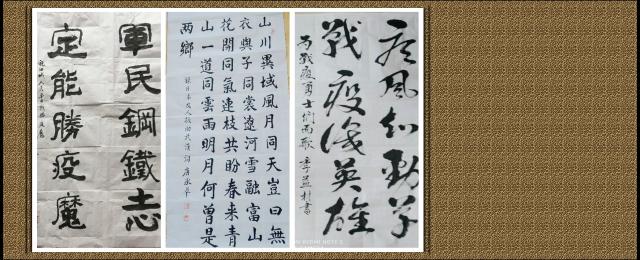 軍民鋼鐵志
定能勝疫魔
山川異域風月同天豈曰無
衣與子同裳遼河雪融富山
花開同氣連枝共盼春来青
山一道同雲雨明月何曾是
两鄉
疾风知勁草
戰疫识英雄
为戰疫勇士们而歌